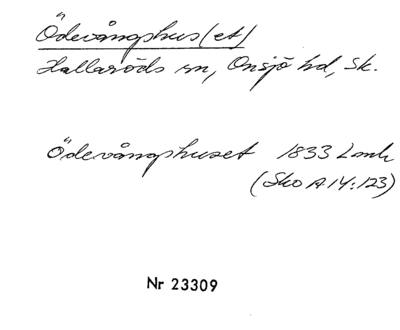 Ödevångshus(et)
Hallaröds sn, Onsjö hd, Sk.
Ödevångshuset 1833 Lmk
(Sko A 14:123)
Nr 23309